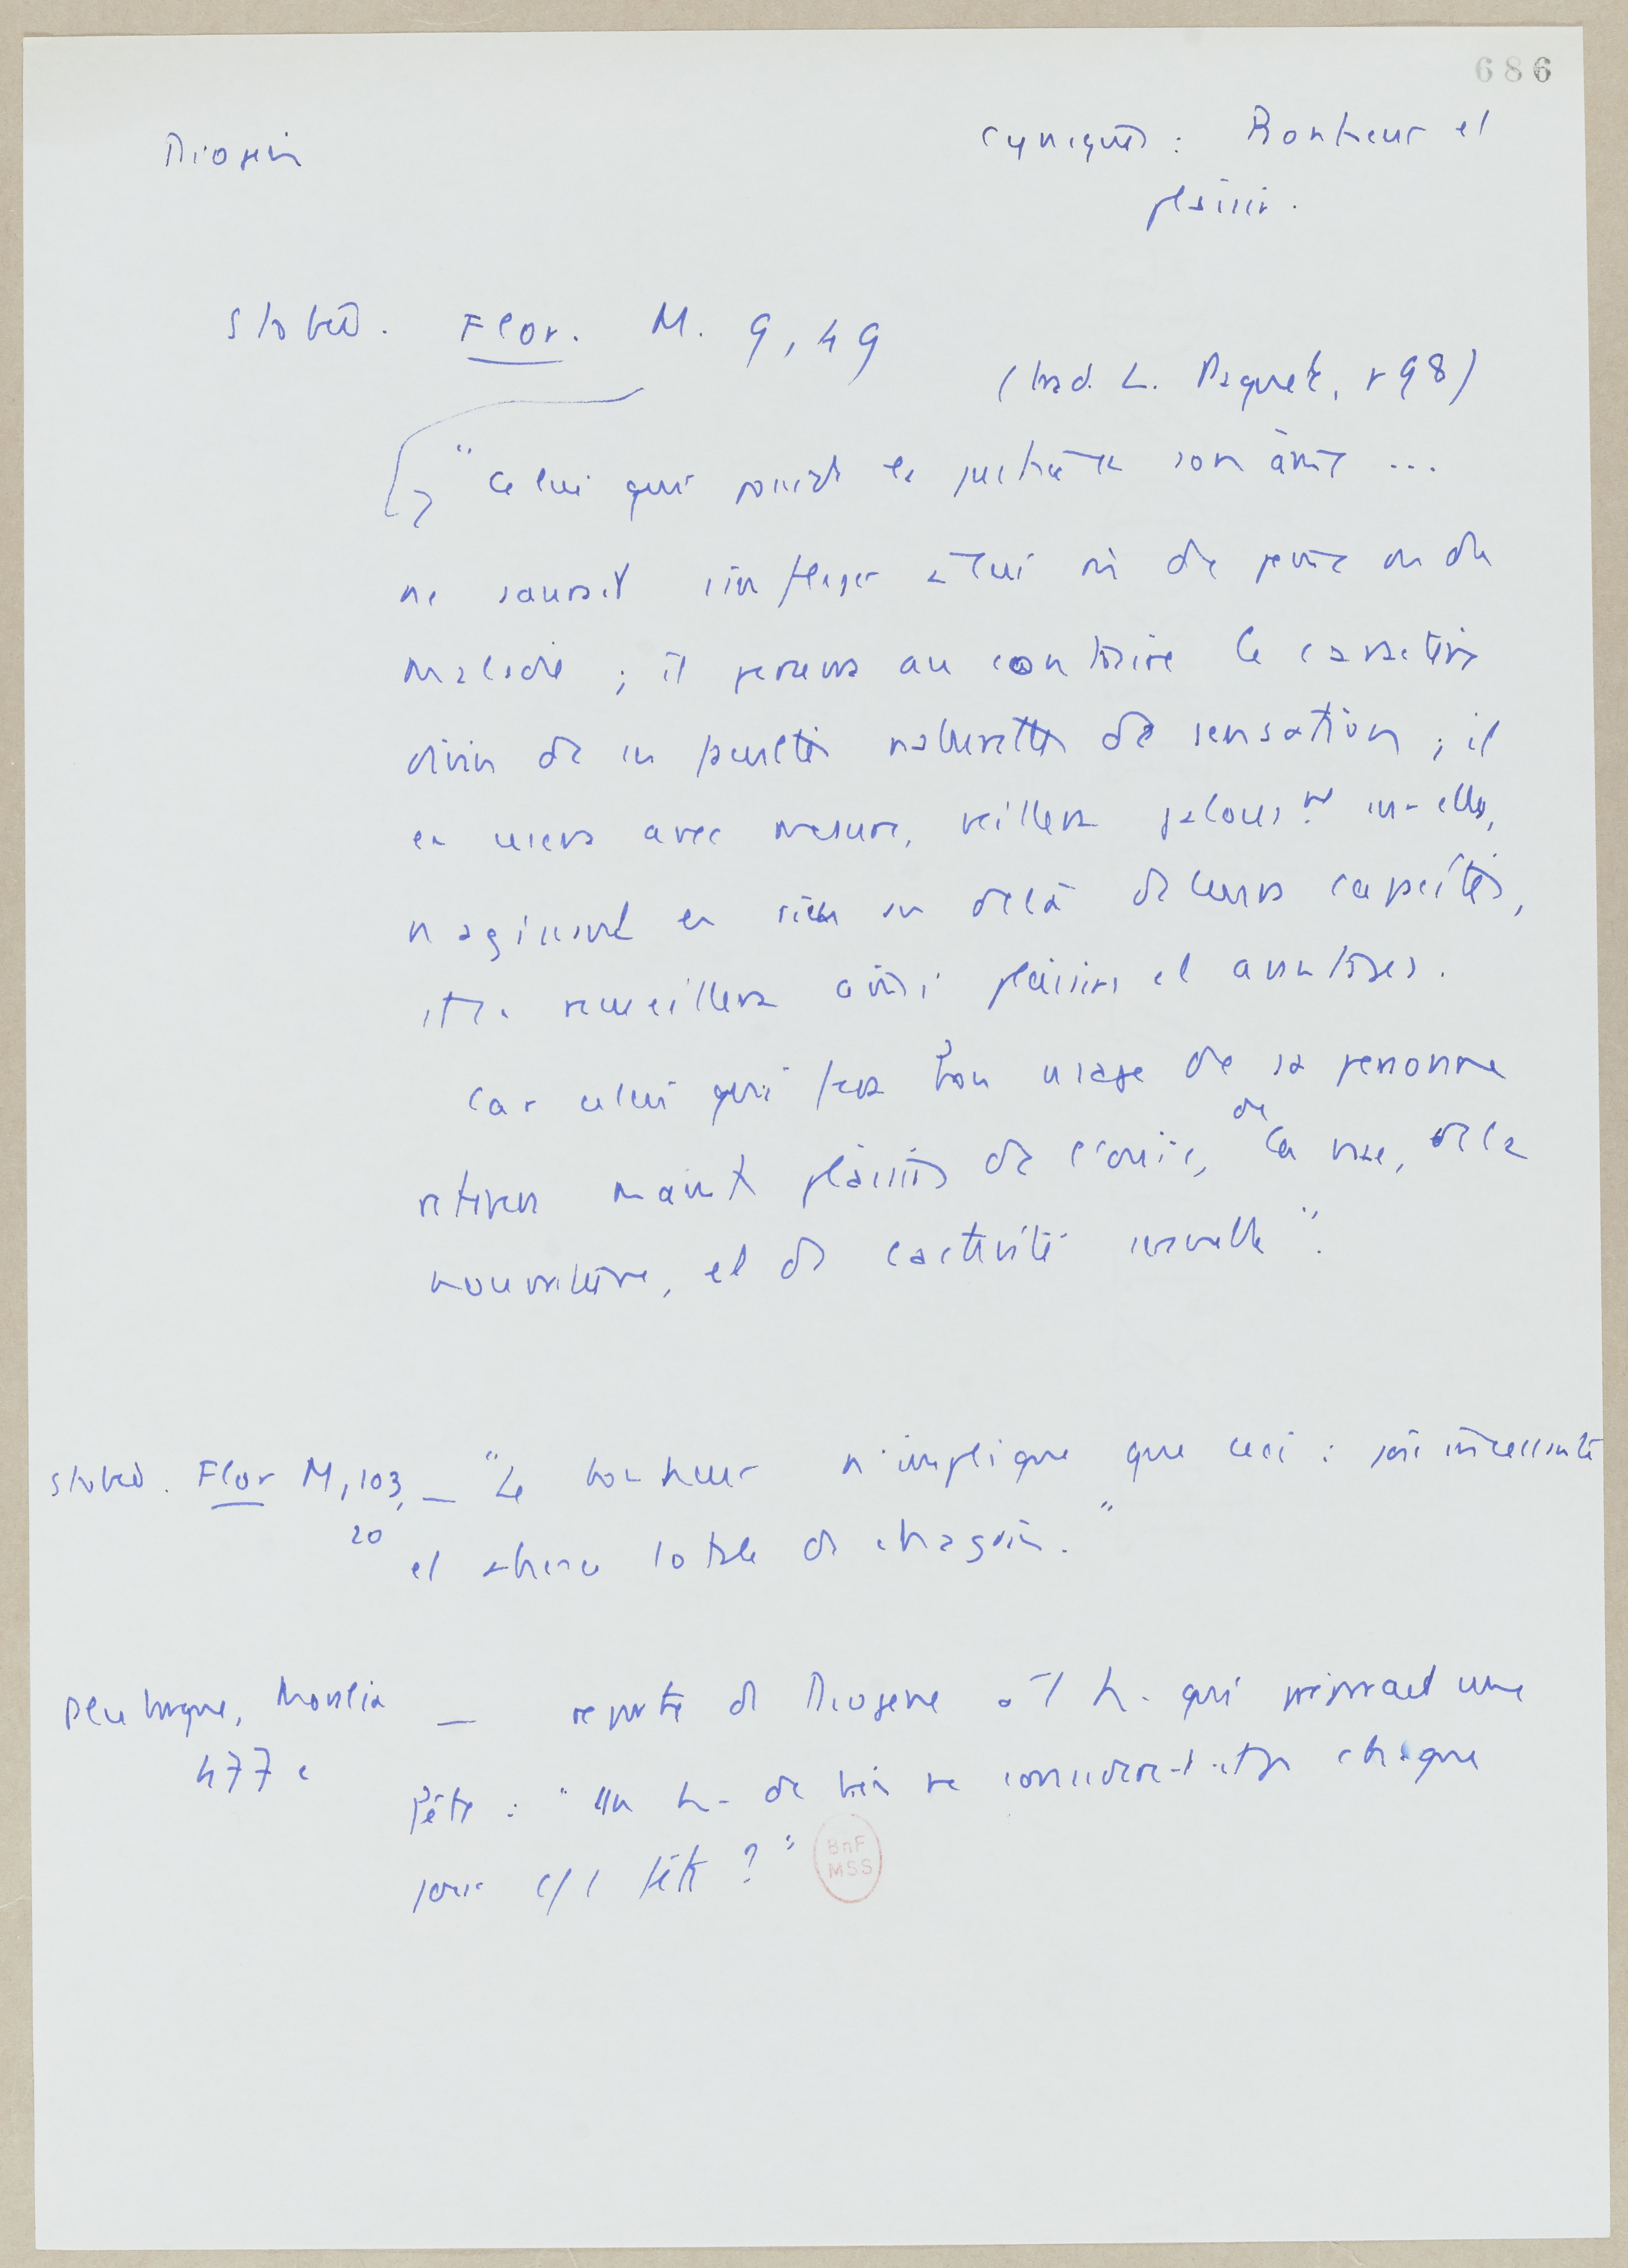 686
Diogène
Cyniques : Bonheur et
plaisir.
Stobée. Flor. M. 9, 49
(trad. L. Paquet, p 98)
"Celui qui possède la justice dans son âme ...
ne saurait s'infliger à lui ni de peine ni de
maladie ; il prouvera au contraire le caractère
divin de ses facultés naturelles de sensation ; il
en usera avec mesure, veillera jalousmt sur elles,
n'agissant en rien au delà de leurs capacités,
et en recueillera ainsi plaisirs et avantages.
Car celui qui fera bon usage de sa personne
retirera maints plaisirs de l'ouïe, de la vue, de la
nourriture, et de l'activité sexuelle".
Stobée. Flor M, 103, — "Le bonheur n'implique que ceci : joie incessante
20
et absence totale de chagrin."
Plutarque, Moralia — repartie de Diogène à 1 h. qui préparait une
477 c
fête : "Un h. de bien ne considère-t-il pas chaque
jour c/ 1 fête ?"
BnF
MSS